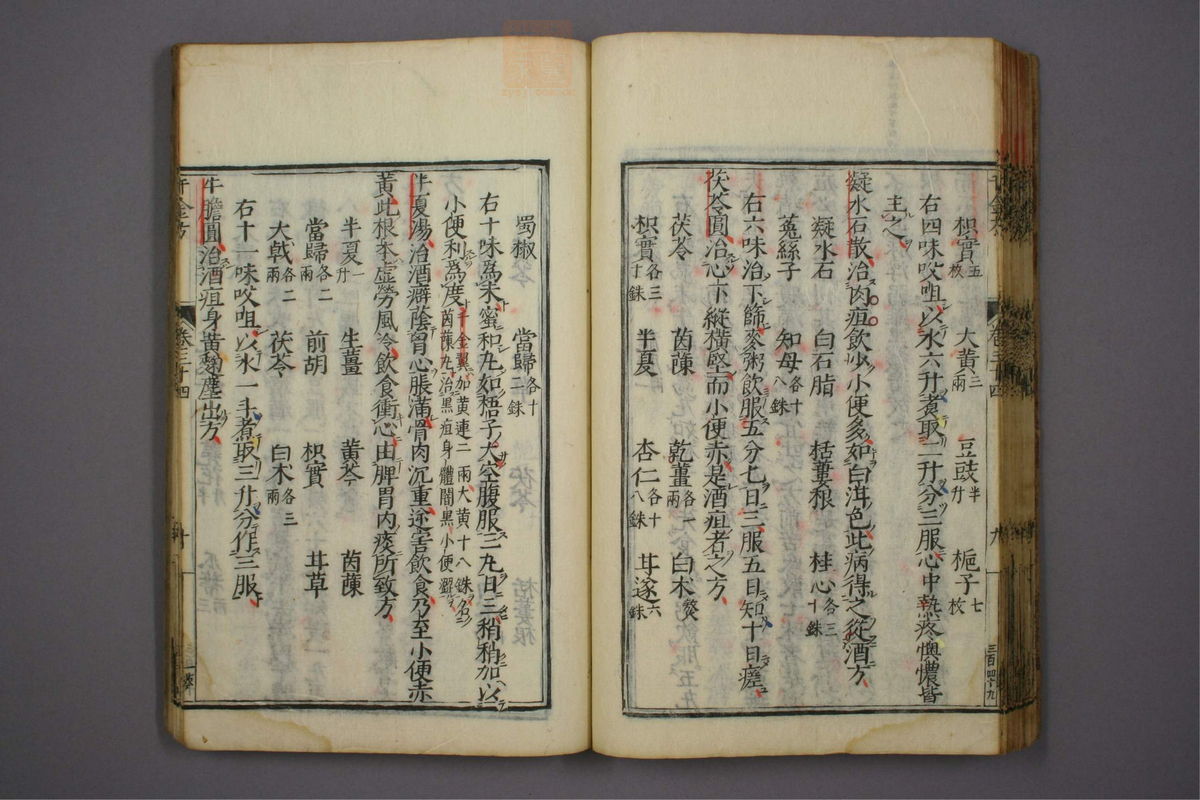 枳實五枚　大黃三兩　豆豉半升　梔子七枚
右四味㕮咀以水六升煑取二升分三服心中熱疼懊憹皆
主之
凝水石散治肉疸飲少小便多如白泔色此病得之從酒方
凝水石　白石脂　栝蔞根　桂心各三十銖
菟絲子　知母各十八銖
右六味治下篩麥粥飲服五分七日三服五日知十日瘥
茯苓圓治心下縱橫堅而小便赤是酒疸者之方
茯苓　茵蔯　乾薑各一兩　白朮熬
枳實各三十銖　半夏　杏仁各十八銖　甘遂六銖
三百四十九
蜀椒　當歸各十二銖
右十味爲末蜜和丸如梧子大空腹服三丸日三稍稍加以
小便利爲度千金翼加黃連二兩大黃十八銖名茵蔯丸治黑疸身體闇黑小便澀
半夏湯治酒癖蔭胷心脹滿骨肉沉重逆害飲食乃至小便赤
黃此根本虛勞風冷飲食衝心由脾胃內痰所致方
半夏一升　生薑　黃芩　茵蔯
當歸各二兩　前胡　枳實　甘草
大戟各二兩　茯苓　白朮各三兩
右十一味㕮咀以水一斗煮取三升分作三服
牛膽圓治酒疸身黃麴塵出方
千金方　卷三十四　十